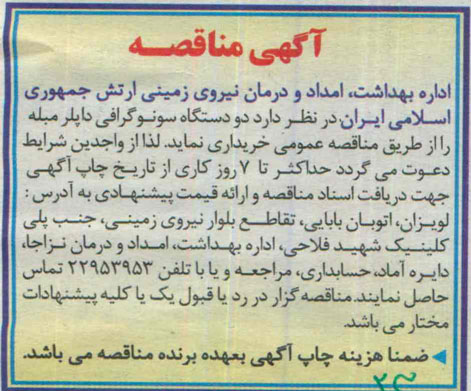 آگهی مناقصه
اداره بهداشت، امداد و درمان نیروی زمینی ارتش جمهوری
اسلامی ایران در نظر دارد دو دستگاه سونوگرافی داپلر مبله
را از طریق مناقصه عمومی خریداری نماید. لذا از واجدین شرایط
دعوت می گردد حداکثر تا ۷ روز کاری از تاریخ چاپ آگهی
جهت دریافت اسناد مناقصه و ارائه قیمت پیشنهادی به آدرس :
لویزان، اتوبان بابایی، تقاطع بلوار نیروی زمینی، جنب پلی
کلینیک شهید فلاحی، اداره بهداشت، امداد و درمان نزاجا،
دایره آماد، حسابداری، مراجعه و یا با تلفن ۲۲۹۵۳۹۵۳ تماس
حاصل نمایند. مناقصه گزار در رد یا قبول یک یا کلیه پیشنهادات
مختار می باشد.
ضمنا هزینه چاپ آگهی بعهده برنده مناقصه می باشد.